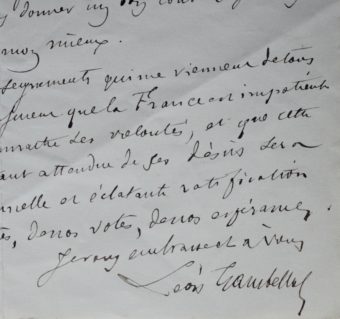 donner
mon mieux.
seignements qui me viennent de tous
que la France est impatiente
naître ses volontés, et que cette
tant attendue de ses désirs sera
nelle et éclatante ratification
tés, de nos votes, de nos espérances.
Je vous embrasse à vous
Léon Gambetta